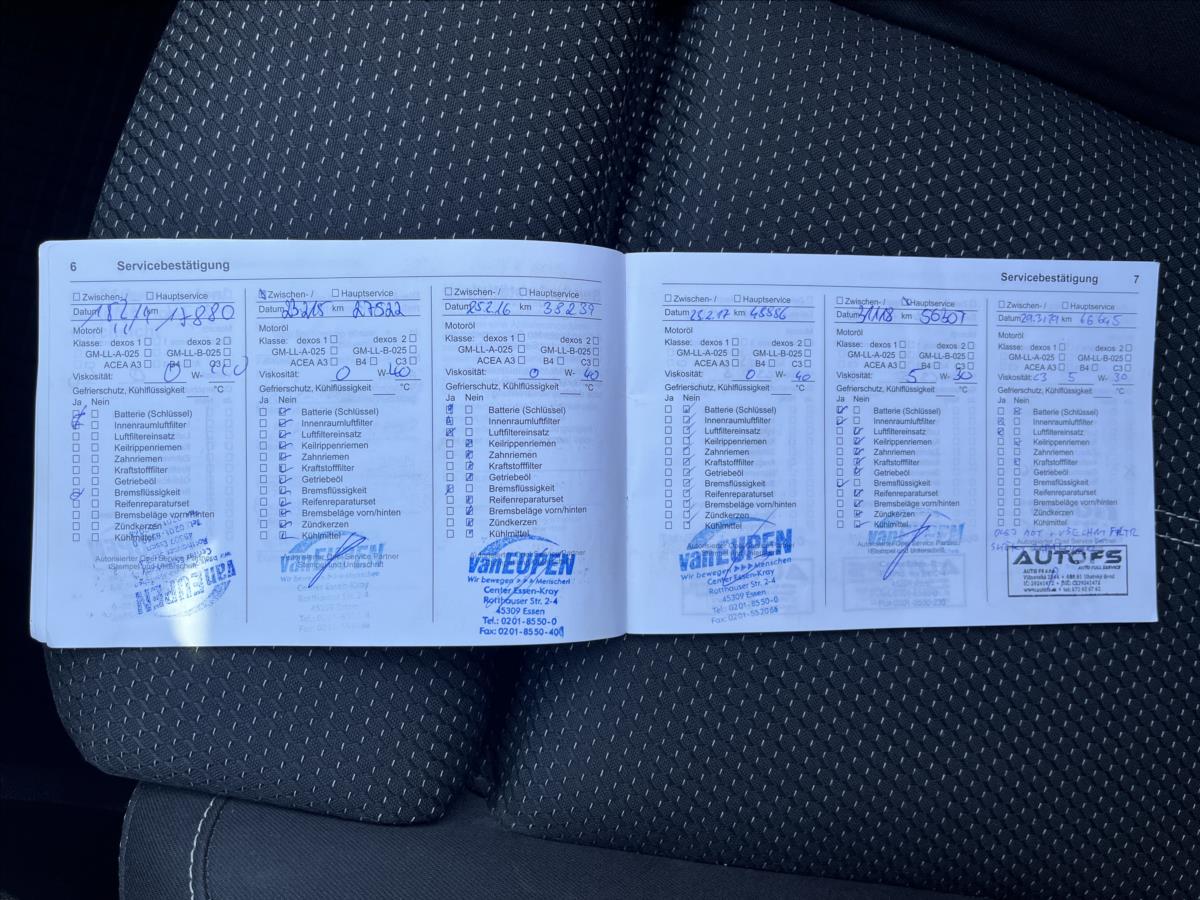 6 Servicebestätigung
Zwischen-/ Hauptservice
Datum km 17880
Motoröl
Klasse: dexos 1 dexos 2
GM-LL-A-025 GM-LL-B-025
ACEA A3 B4 C3
Viskosität: 0 W-
Gefrierschutz, Kühlflüssigkeit °C
Ja Nein
Batterie (Schlüssel)
Innenraumluftfilter
Luftfiltereinsatz
Keilrippenriemen
Zahnriemen
Kraftstofffilter
Getriebeöl
Bremsflüssigkeit
Reifenreparaturset
Bremsbeläge vorn/hinten
Zündkerzen
Kühlmittel
Autorisierter Opel Service Partner
(Stempel und Unterschrift)
vanEUPEN
Zwischen-/ Hauptservice
Datum 23215 km 27522
Motoröl
Klasse: dexos 1 dexos 2
GM-LL-A-025 GM-LL-B-025
ACEA A3 B4 C3
Viskosität: 0 W- 40
Gefrierschutz, Kühlflüssigkeit °C
Ja Nein
Batterie (Schlüssel)
Innenraumluftfilter
Luftfiltereinsatz
Keilrippenriemen
Zahnriemen
Kraftstofffilter
Getriebeöl
Bremsflüssigkeit
Reifenreparaturset
Bremsbeläge vorn/hinten
Zündkerzen
Kühlmittel
Autorisierter Opel Service Partner
(Stempel und Unterschrift)
vanEUPEN
Wir bewegen Menschen
Center Essen-Kray
Rotthauser Str. 2-4
45309 Essen
Zwischen-/ Hauptservice
Datum 25.2.16 km 33239
Motoröl
Klasse: dexos 1 dexos 2
GM-LL-A-025 GM-LL-B-025
ACEA A3 B4 C3
Viskosität: 0 W- 40
Gefrierschutz, Kühlflüssigkeit °C
Ja Nein
Batterie (Schlüssel)
Innenraumluftfilter
Luftfiltereinsatz
Keilrippenriemen
Zahnriemen
Kraftstofffilter
Getriebeöl
Bremsflüssigkeit
Reifenreparaturset
Bremsbeläge vorn/hinten
Zündkerzen
Kühlmittel
vanEUPEN
Wir bewegen Menschen
Center Essen-Kray
Rotthauser Str. 2-4
45309 Essen
Tel.: 0201-8550-0
Fax: 0201-8550-400
Servicebestätigung 7
Zwischen-/ Hauptservice
Datum 23.2.17 km 48556
Motoröl
Klasse: dexos 1 dexos 2
GM-LL-A-025 GM-LL-B-025
ACEA A3 B4 C3
Viskosität: 0 W- 40
Gefrierschutz, Kühlflüssigkeit °C
Ja Nein
Batterie (Schlüssel)
Innenraumluftfilter
Luftfiltereinsatz
Keilrippenriemen
Zahnriemen
Kraftstofffilter
Getriebeöl
Bremsflüssigkeit
Reifenreparaturset
Bremsbeläge vorn/hinten
Zündkerzen
Kühlmittel
vanEUPEN
Wir bewegen Menschen
Center Essen-Kray
Rotthauser Str. 2-4
45309 Essen
Tel.: 0201-8550-0
Zwischen-/ Hauptservice
Datum km 56307
Motoröl
Klasse: dexos 1 dexos 2
GM-LL-A-025 GM-LL-B-025
ACEA A3 B4 C3
Viskosität: 5 W- 30
Gefrierschutz, Kühlflüssigkeit °C
Ja Nein
Batterie (Schlüssel)
Innenraumluftfilter
Luftfiltereinsatz
Keilrippenriemen
Zahnriemen
Kraftstofffilter
Getriebeöl
Bremsflüssigkeit
Reifenreparaturset
Bremsbeläge vorn/hinten
Zündkerzen
Kühlmittel
Autorisierter Opel Service Partner
(Stempel und Unterschrift)
vanEUPEN
Zwischen-/ Hauptservice
Datum km 66645
Motoröl
Klasse: dexos 1 dexos 2
GM-LL-A-025 GM-LL-B-025
ACEA A3 B4 C3
Viskosität: C3 5 W- 30
Gefrierschutz, Kühlflüssigkeit °C
Ja Nein
Batterie (Schlüssel)
Innenraumluftfilter
Luftfiltereinsatz
Keilrippenriemen
Zahnriemen
Kraftstofffilter
Getriebeöl
Bremsflüssigkeit
Reifenreparaturset
Bremsbeläge vorn/hinten
Zündkerzen
Kühlmittel
AUTO FS
AUTO FULL SERVICE